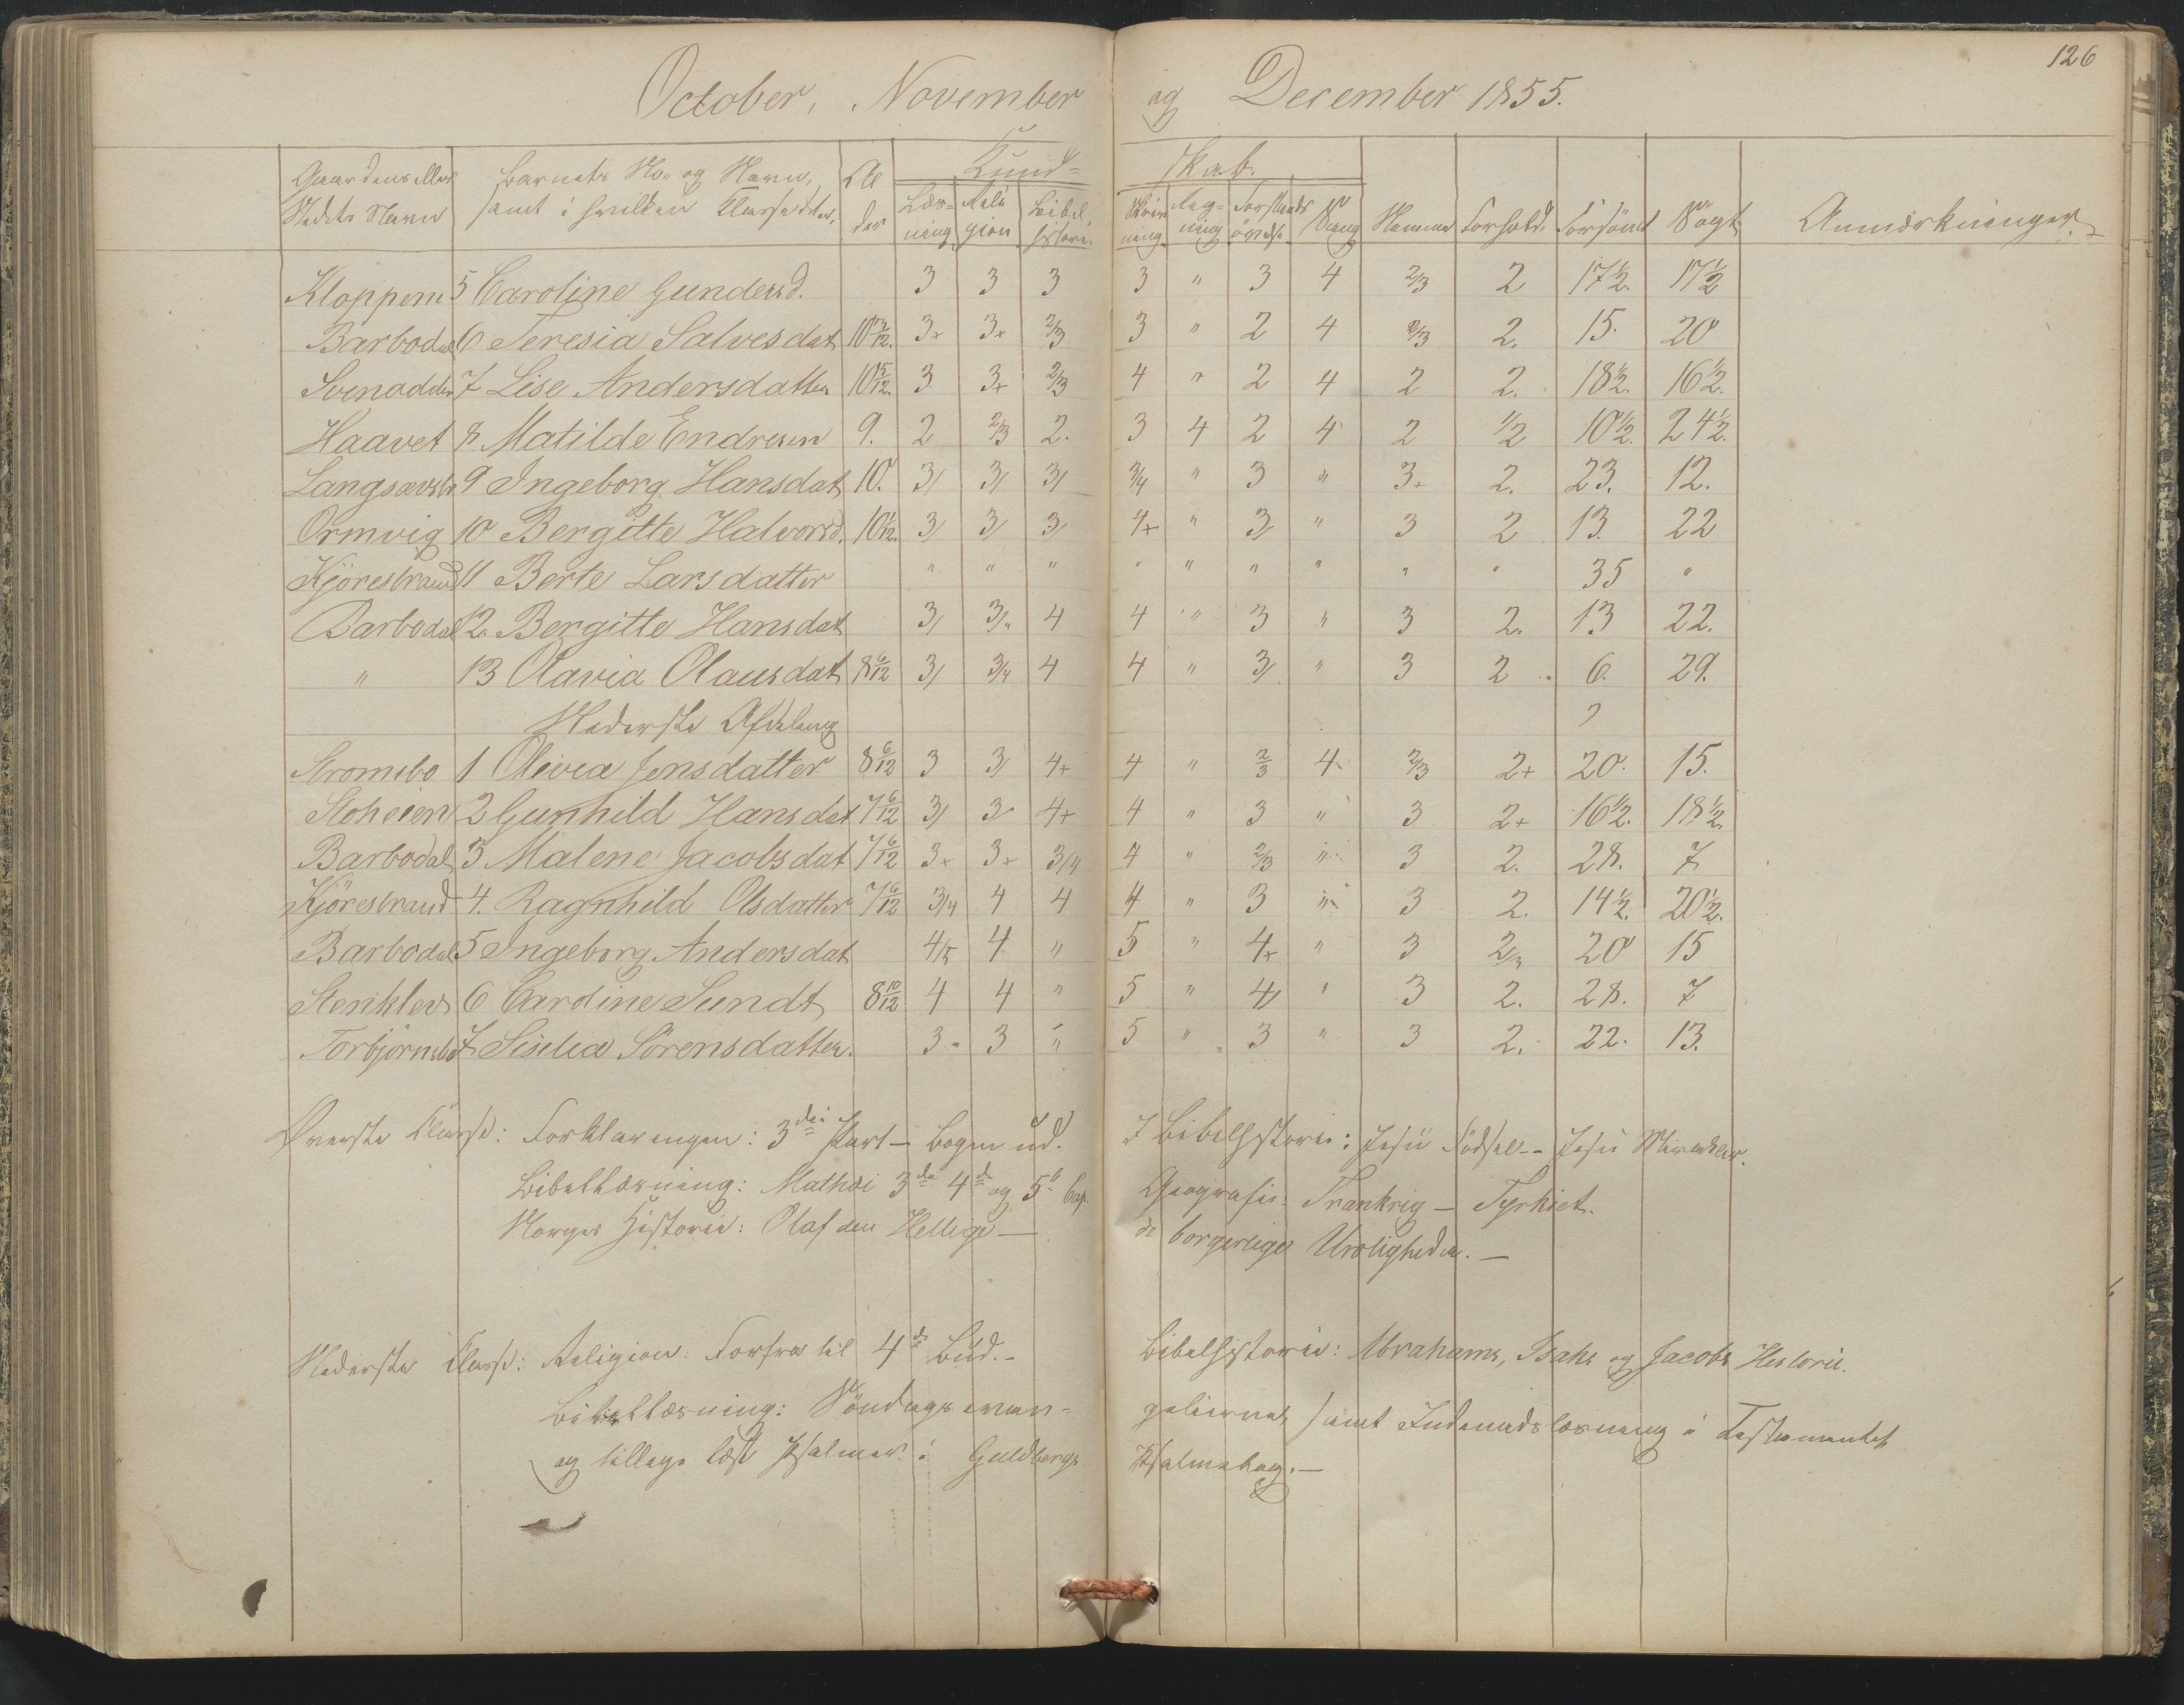 126
October, November og December 1855.
Gaardens eller Stedets Navn | Barnets No. og Navn, samt i hvilken Classe det er. | Alder | Kundskab. Læsning | Religion | Bibelhistorie. | Skrivning | Regning | Forstandsøvelse | Sang | Nemme | Forhold. | Forsömt | Sögt | Anmærkninger.
Kloppene 5 Caroline Gundersd. 3 3 3 3 " 3 4 2/3 2 17½. 17½
Barbodal 6 Teresia Salvesdat 3+ 3+ 2/3 3 " 2 4 2/3 2. 15. 20
Svenodden 7 Lise Andersdatter 10 5/12. 3 3+ 2/3 4 " 2 4 2 2. 18½. 16½.
Haavet 8. Matilde Endresen 9. 2 2/3 2. 3 4 2 4 2 ½ 10½. 24½.
Langsævbr 9 Ingeborg Hansdat 10. 3/ 3/ 3/ 3/4 " 3 " 3+ 2. 23. 12.
Ormvig 10 Bergitte Halvorsd. 10 1/12. 3/ 3/ 3/ 4+ " 3/ " 3 2 13. 22
Kjörestrand 11 Berte Larsdatter " " " " " " " " " 35 "
Barbodal 12. Bergitte Hansdat 3/ 3/4 4 4 " 3 " 3 2. 13 22.
" 13 Olavia Olausdat 8 6/12 3/ 3/4 4 4 " 3/ " 3 2 6. 29.
Nederste Afdeling
Stromsbo 1 Olivia Jensdatter 8 6/12 3 3/ 4+ 4 " 2/3 4 2/3 2+ 20. 15.
Stoheien 2 Gunhild Hansdat 7 6/12 3/ 3 4+ 4 " 3 " 3 2+ 16½. 18½.
Barbodal 3 Malene Jacobsdat 7 6/12 3+ 3+ 3/4 4 " 2/3 " 3 2. 28. 7
Kjörestrand 4. Ragnhild Olsdatter 7 6/12 3/4 4 4 4 " 3 " 3 2. 14½. 20½.
Barbodal 5 Ingeborg Andersdat 4/5 4 " 5 " 4+ " 3 2/3 20 15
Stenklev 6 Caroline Sundt 8 10/12 4 4 " 5 " 4/ " 3 2. 28. 7
Torbjörnsbo 7 Siselia Sörensdatter. 3 3 " 5 " 3 " 3 2. 22. 13.
Øverste Classe: Forklaringen: 3die Part – Bogen ud. I Bibelhistorie: Jesu Födsel -- Jesu Mirakler.
Bibellæsning: Mathæi 3die 4de og 5te Cap. Geografie: Frankrig – Tyrkiet.
Norges Historie: Olaf den Hellige – de borgerlige Uroligheder. –
Nederste Classe: Religion: Forfra til 4de Bud. – Bibelhistorie: Abrahams, Isaks og Jacobs Historie.
Bibellæsning: Söndagsevangelierne, samt Indenadslæsning i Testamentet
og tillige læst Psalmer i Guldbergs Psalmebog. –